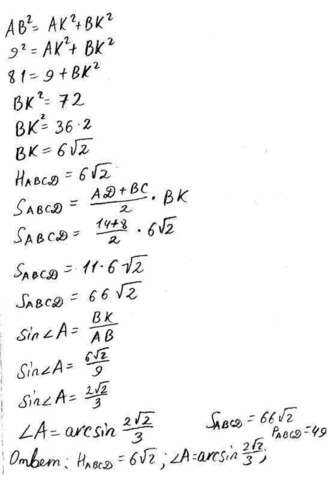 AB² = AK² + BK²
9² = AK² + BK²
81 = 9 + BK²
BK² = 72
BK² = 36·2
BK = 6√2
H_ABCD = 6√2
S_ABCD = (AD + BC)/2 · BK
S_ABCD = (14+8)/2 · 6√2
S_ABCD = 11·6√2
S_ABCD = 66√2
sin∠A = BK/AB
sin∠A = 6√2/9
sin∠A = 2√2/3
∠A = arcsin 2√2/3
S_ABCD = 66√2
P_ABCD = 49
Ответ: H_ABCD = 6√2; ∠A = arcsin 2√2/3;